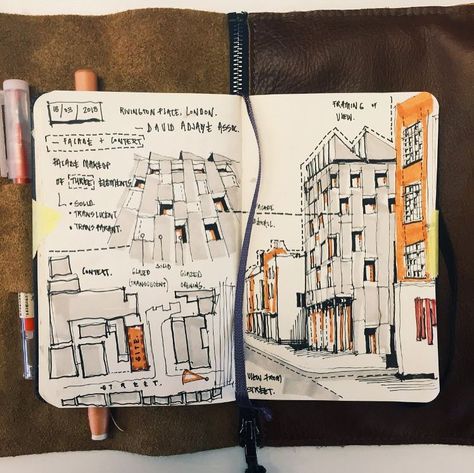 18/03/2015
RIVINGTON PLACE, LONDON.
— DAVID ADJAYE ASSOC.
— FACADE + CONTEXT
FACADE MAKEUP
OF THREE ELEMENTS
• SOLID
• TRANSLUCENT
• TRANSPARENT.
CONTEXT.
GLAZED
TRANSLUCENT
SOLID
GLAZED
OPENING.
SITE.
STREET.
FRAMING OF
VIEW.
FACADE
DETAIL.
VIEW FROM
STREET.